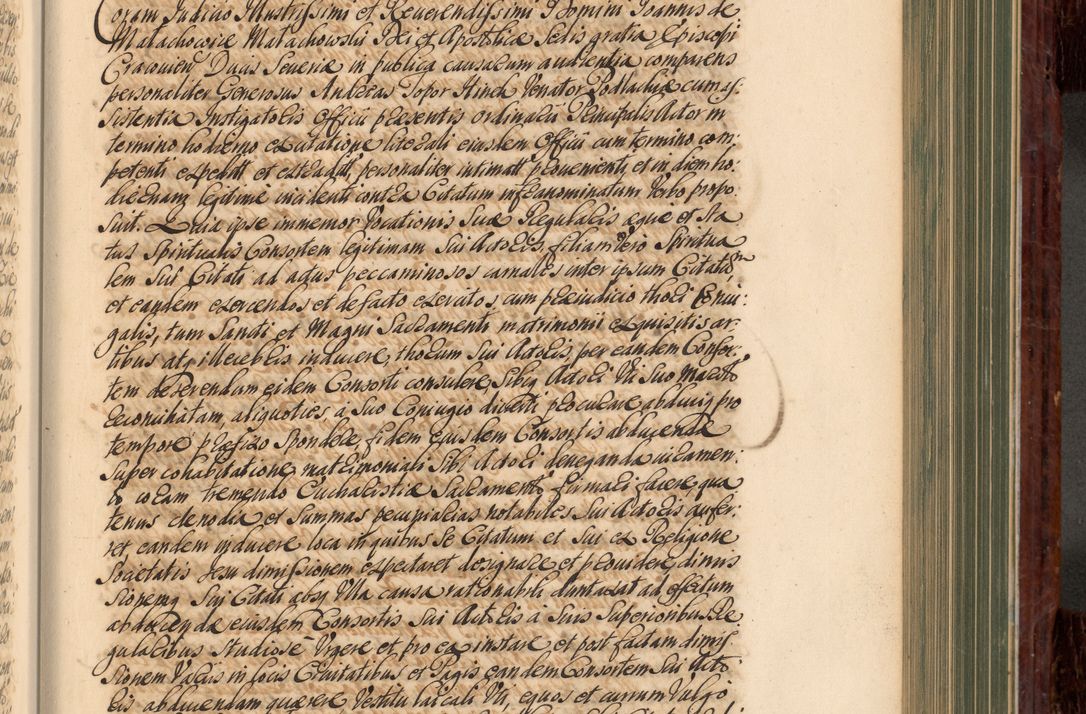 Coram Judicio Illustrissimi et Reverendissimi Domini Joannis de
Małachowice Małachowski Dei et Apostolicæ Sedis gratia Episcopi
Cracovien Ducis Severiæ in publica causarum audientia comparens
personaliter Generosus Andreas Topor Hinek Venator Podlachiæ cum as-
sistentia Instigatoris Officii præsentis ordinarii Principalis Actor in
termino hodierno ex citatione literali eiusdem Officii cum termino com-
petenti personaliter intimat provenienti et in diem ho-
diernam legitime incidenti contra Citatum infranominatum Verbo propo
suit. Quia ipse immemor Vocationis Suæ Regularis æque et Sta
tus Spiritualis Consortem legitimam Sui Actoris, filiam Vero Spiritua
lem Sui Citati ad actus peccaminosos carnales inter ipsum Citatum
et eandem exercendos et de facto exercitos, cum præiudicio thori Coniu-
galis, tum Sancti et Magni Sacramenti matrimonii exquisitis ar-
tibus at inducere, thorum Sui Actoris, per eandem Consor-
tem deserendum eidem Consorti consulere, Sibiq Actori Uti Suo Marito
reconciliatam, aliquoties a Suo Coniugio diverti procurare, abducig pro
tempore præfixo Spondere, fidem eiusdem Consortis abducendæ
Super cohabitatione matrimoniali Sibi Actori deneganda iuramen-
to coram tremendo Eucharistiæ Sacramento firmari facere, qua
tenus clenodia et Summas pecuniarias notabiles Sui Actoris aufer-
ret eandem inducere, loca in quibus Se Citatum et Sui ex Religione
Societatis Jesu dimissionem expectaret designare et providere, dimis
sionemq Sui Citati absq Ulla causa rationabili duntaxat ad effectum
abducendæ eiusdem Consortis Sui Actoris à Suis Superioribus Re
gularibus Studiose Urgere et pro ea instare, et post factam dimis
sionem Variis in locis Civitatibus et Pagis eandem Consortem Sui Acto
ris abducendam quærere Vestitu laicali Uti, equos et currum Vulgo